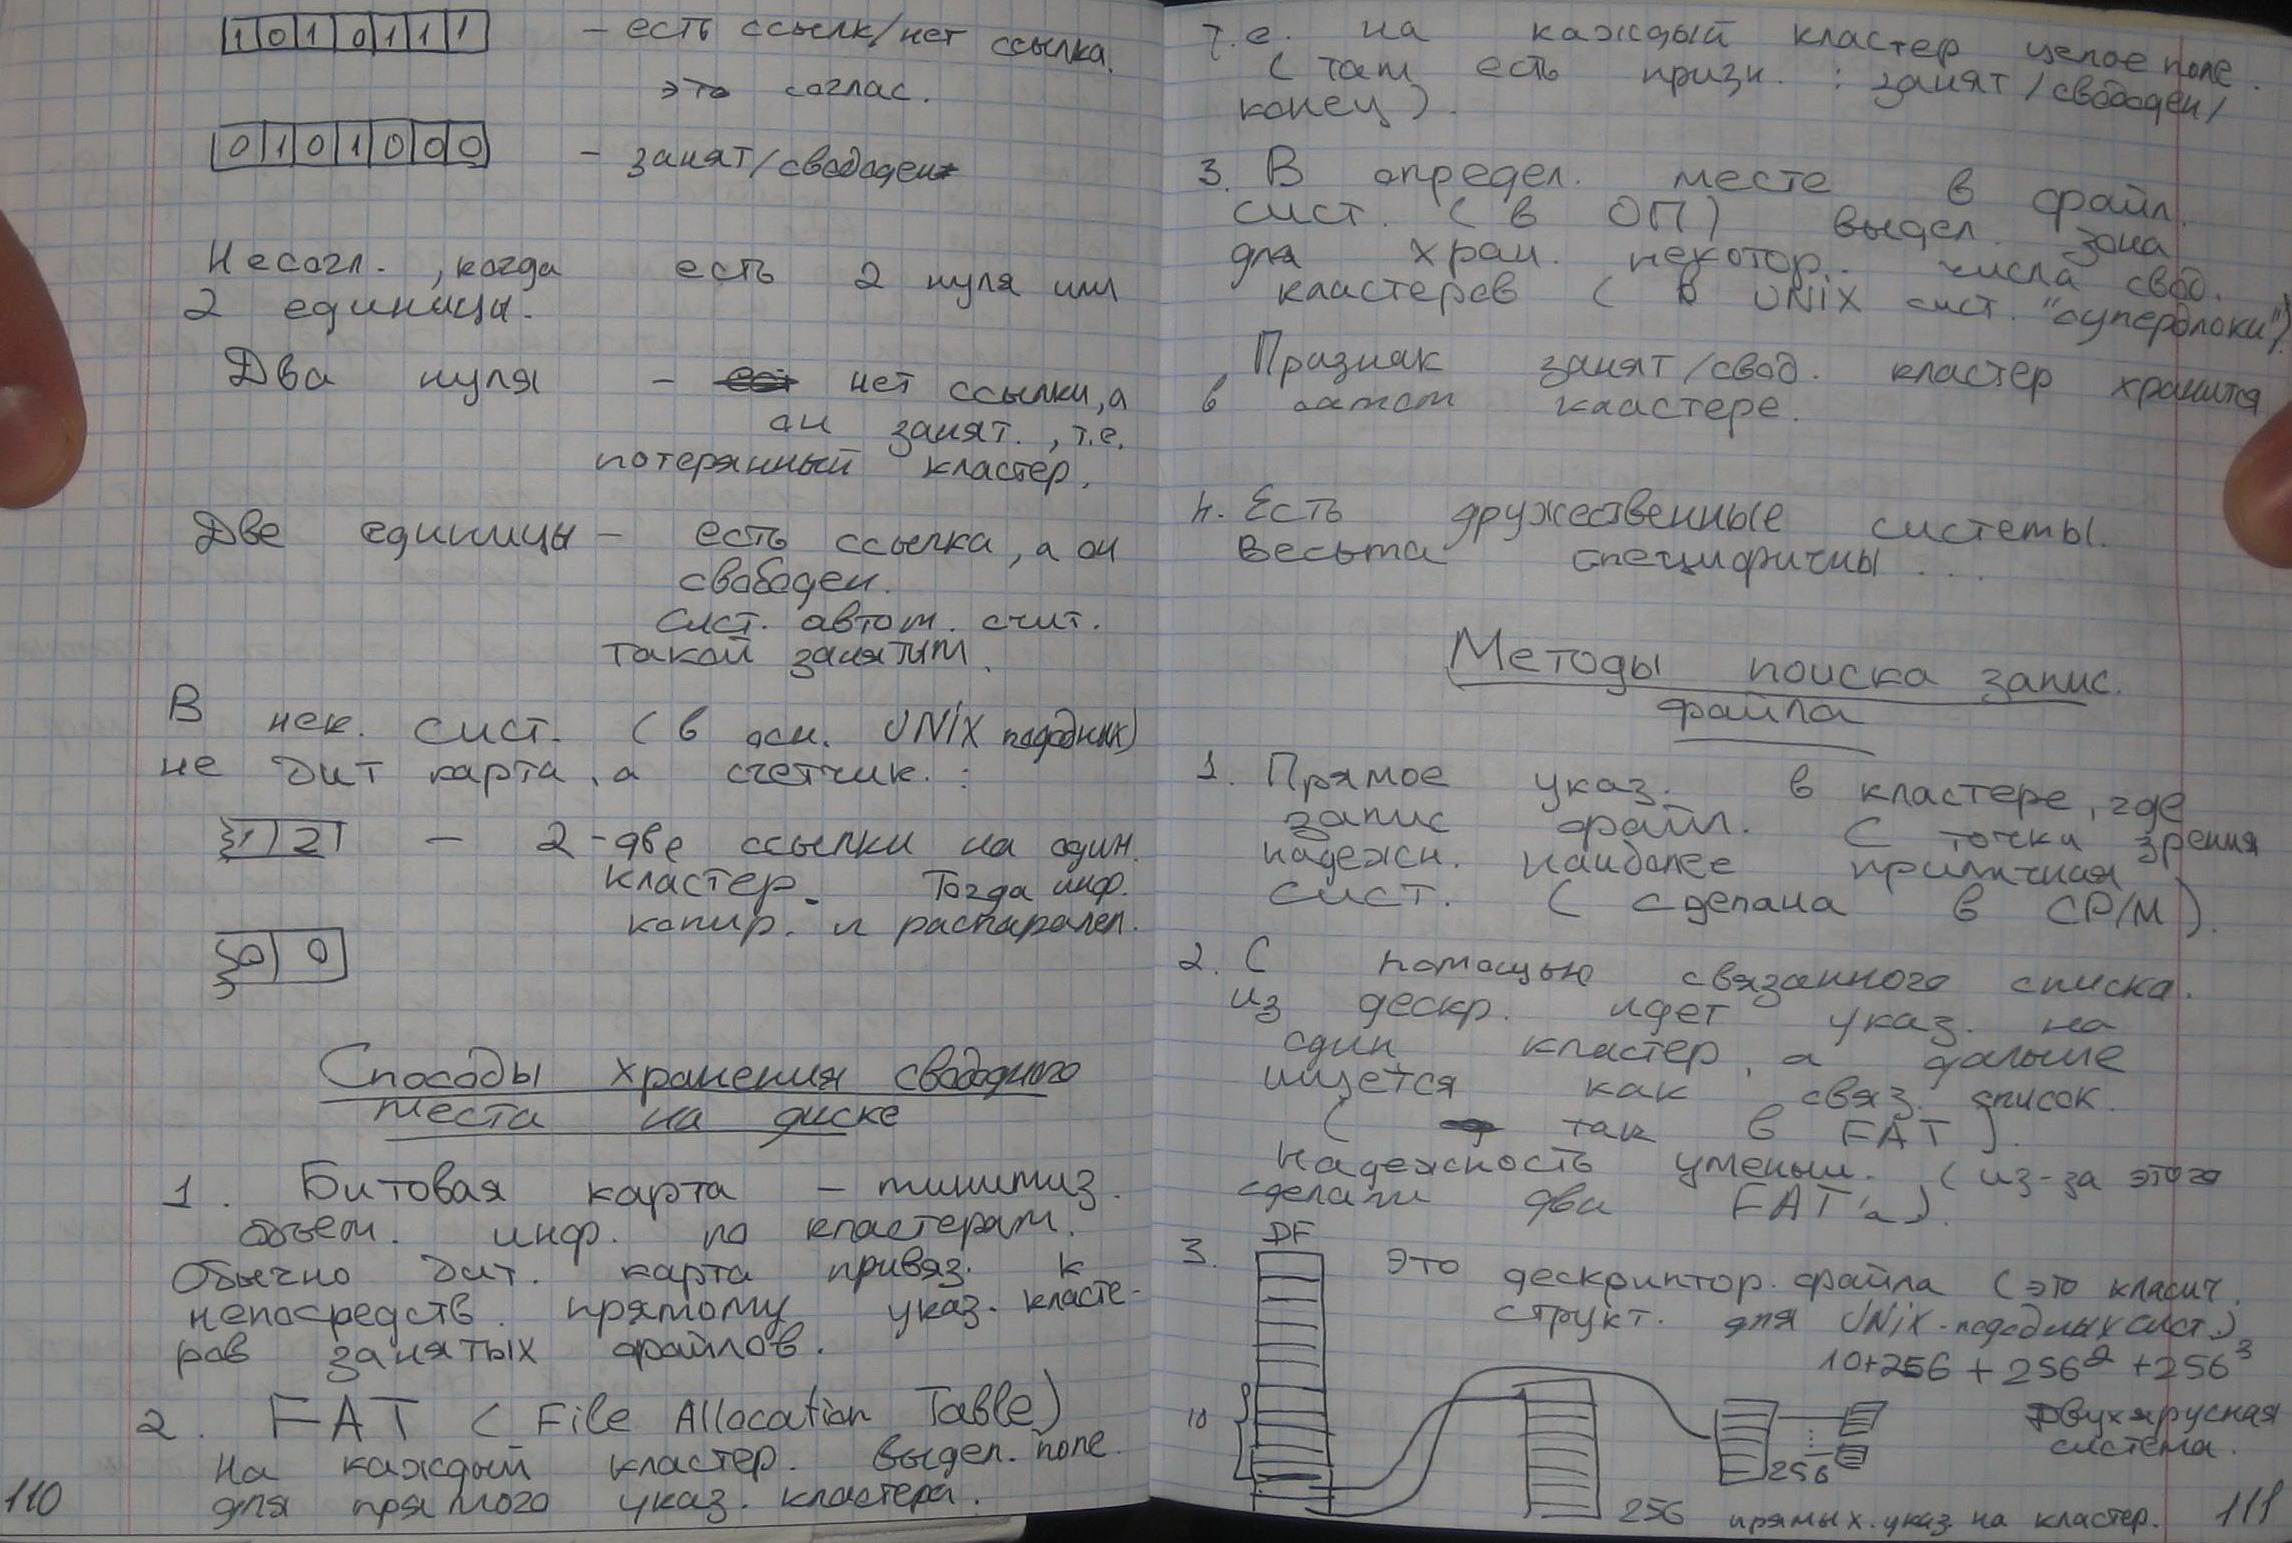 1 0 1 0 1 1 1 - есть ссылк/нет ссылка.
это соглас.
0 1 0 1 0 0 0 - занят/свободен
Несогл., когда есть 2 нуля или
2 единицы.
Два нуля - нет ссылки, а
он занят., т.е.
потерянный кластер.
Две единицы - есть ссылка, а он
свободен.
Сист. автом. счит.
такой занятым.
В нек. сист. (в осн. UNiX подобных)
не бит карта, а счетчик. :
1 2 - 2 - две ссылки на один.
кластер. Тогда инф.
копир. и распаралел.
0 0
Способы хранения свободного
места на диске
1. Битовая карта - минимиз.
объем. инф. по кластерам.
Обычно бит. карта привяз. к
непосредств. прямому указ. класте-
ров занятых файлов.
2. FAT (File Allocation Table)
На каждый кластер. выдел. поле.
для прямого указ. кластера.
110
т.е. на каждый кластер целое поле.
(там есть призн. : занят/свободен/
конец).
3. В определ. месте в файл.
сист. (в ОП) выдел. зона
для хран. некотор. числа своб.
кластеров (в UNiX сист. "суперблоки").
Признак занят/своб. кластер хранится
в самом кластере.
4. Есть дружественные системы.
Весьма специфичны...
Методы поиска запис.
файла
1. Прямое указ. в кластере, где
запис файл. С точки зрения
надежн. наиболее приличная
сист. (сделана в CP/M).
2. С помощью связанного списка.
Из дескр. идет указ. на
один кластер, а дальше
ищется как связ. список.
(так в FAT).
Надежность уменьш. (из-за этого
сделали два FAT'а).
3. DF это дескриптор. файла (это класич.
структ. для UNiX-подобных сист.)
10+256+256² +256³
10
Двухярусная
система.
256
256 прямых. указ. на кластер.
111